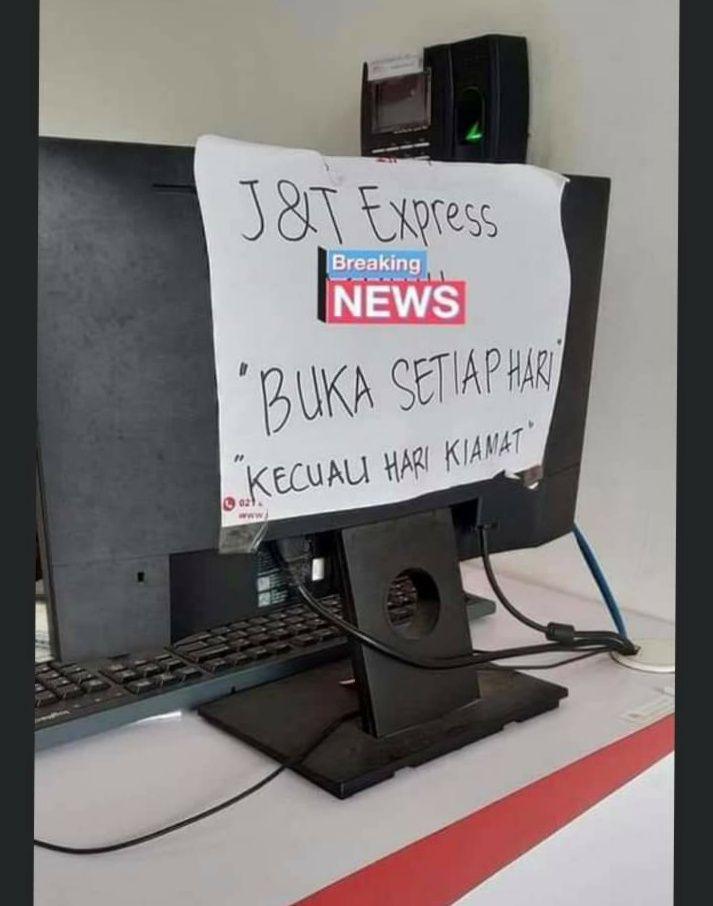 J&T Express
Breaking
NEWS
"BUKA SETIAP HARI"
"KECUALI HARI KIAMAT"
021
www.